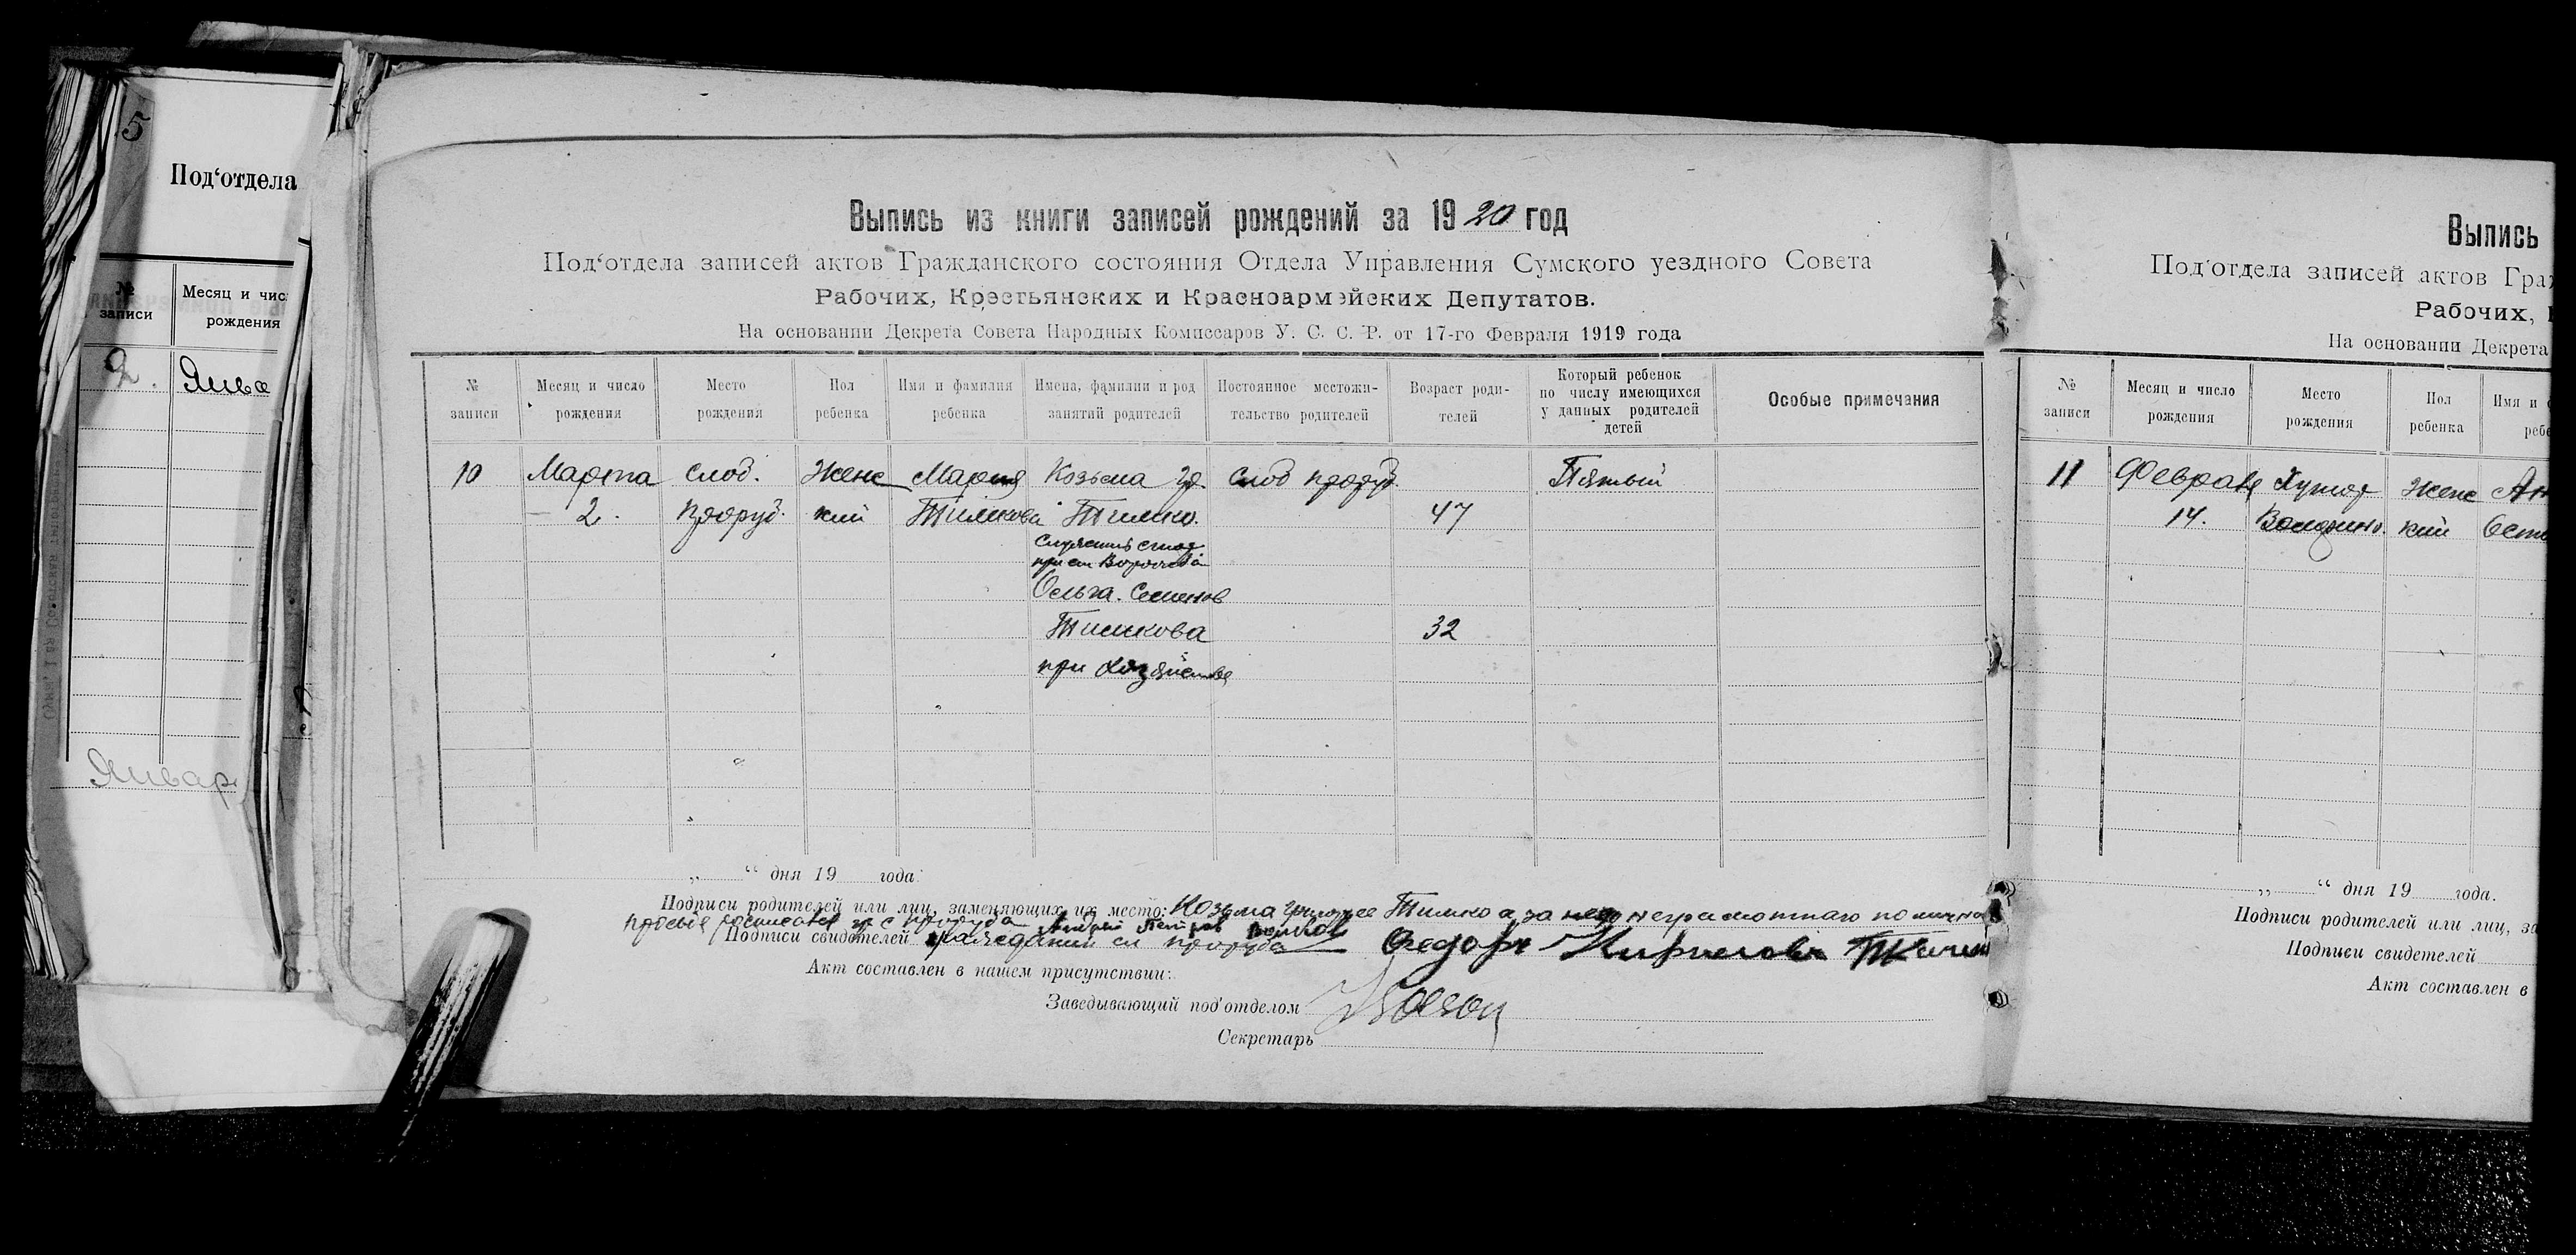 5
Под‘отдела
№ записи
Месяц и чис
рождения
2.
Янва
Январ
Выпись из книги записей рождений за 1920 год
Под‘отдела записей актов Гражданского состояния Отдела Управления Сумского уездного Совета
Рабочих, Крестьянских и Красноармейских Депутатов.
На основании Декрета Совета Народных Комиссаров У. С. С. Р. от 17-го Февраля 1919 года
№ записи
Месяц и число рождения
Место рождения
Пол ребенка
Имя и фамилия ребенка
Имена, фамилии и род занятий родителей
Постоянное местожительство родителей
Возраст родителей
Который ребенок по числу имеющихся у данных родителей детей
Особые примечания
10 Марта слод. Женс Мария Козьма гр. слод проруб. Пятый
2. Проруб. кий Тимкова Тимко. 47
при ст Ворожба
Ольга. Семенов
Тимкова 32
при хозяйстве
„ “ дня 19 года.
Подписи родителей или лиц, заменяющих их место: Козьма Тимко а за него неграмотнаго по лично
Андрей Петров Волков
Подписи свидетелей гражданин сл проруба Федоръ Кириловъ
Акт составлен в нашем присутствии:
Заведывающий под‘отделом
Секретарь
Выпись
Под‘отдела записей актов Граж
Рабочих,
На основании Декрета
№ записи
Месяц и число рождения
Место рождения
Пол ребенка
Имя и
ребе
11 Феврал Хутор Женс
14. кий
„ “ дня 19 года.
Подписи родителей или лиц, за
Подписи свидетелей
Акт составлен в